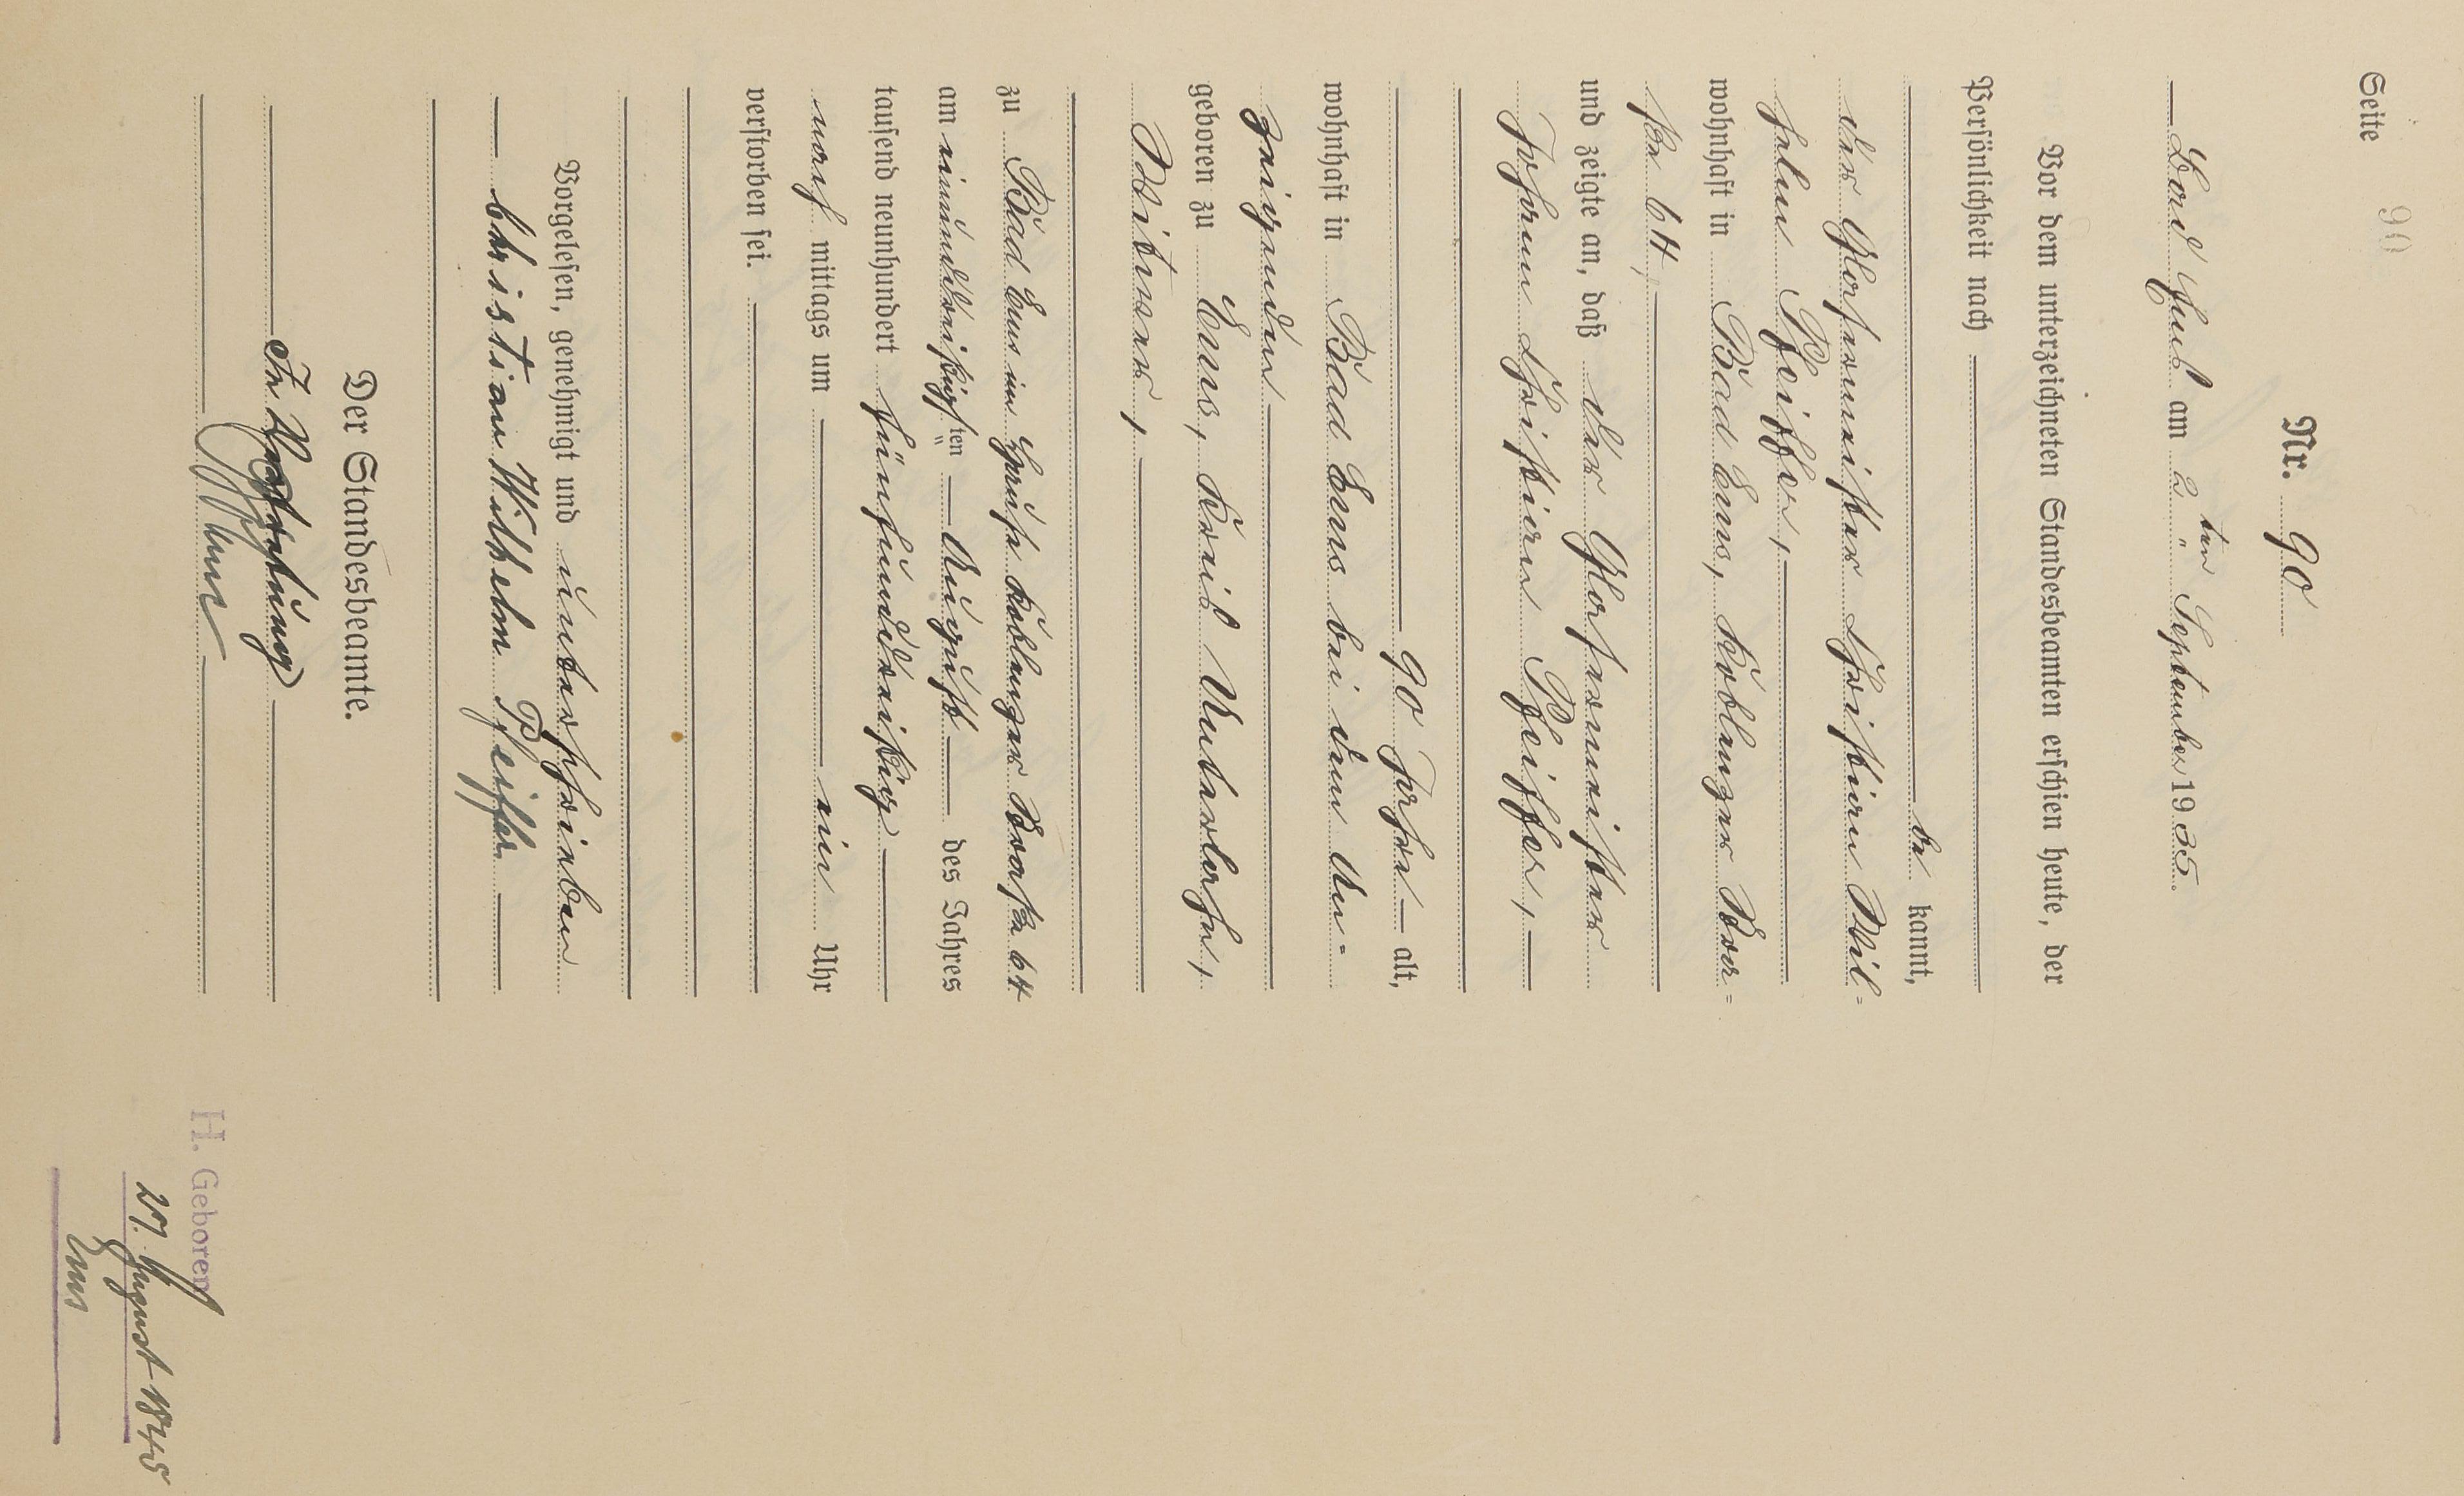 Seite 90
Nr. 90
Bad Ems am 2ten September 1935.
Vor dem unterzeichneten Standesbeamten erschien heute, der
Persönlichkeit nach
be kannt,
der Glasermeister Christian Wil=
helm Pfeiffer,
wohnhaft in Bad Ems, Koblenzer Stra=
ße 64,
und zeigte an, daß der Glasermeister
Johann Christian Pfeiffer,
90 Jahre alt,
wohnhaft in Bad Ems bei dem An=
zeigenden
geboren zu Ems, Kreis Unterlahn,
Witwer,
zu Bad Ems im Hause Koblenzer Straße 64
am einunddreißigsten August des Jahres
tausend neunhundert fünfunddreißig
nach mittags um ein Uhr
verstorben sei.
Vorgelesen, genehmigt und unterschrieben
Christian Wilhelm Pfeiffer
Der Standesbeamte.
In Vertretung
H. Geboren
27. August 1845
Ems